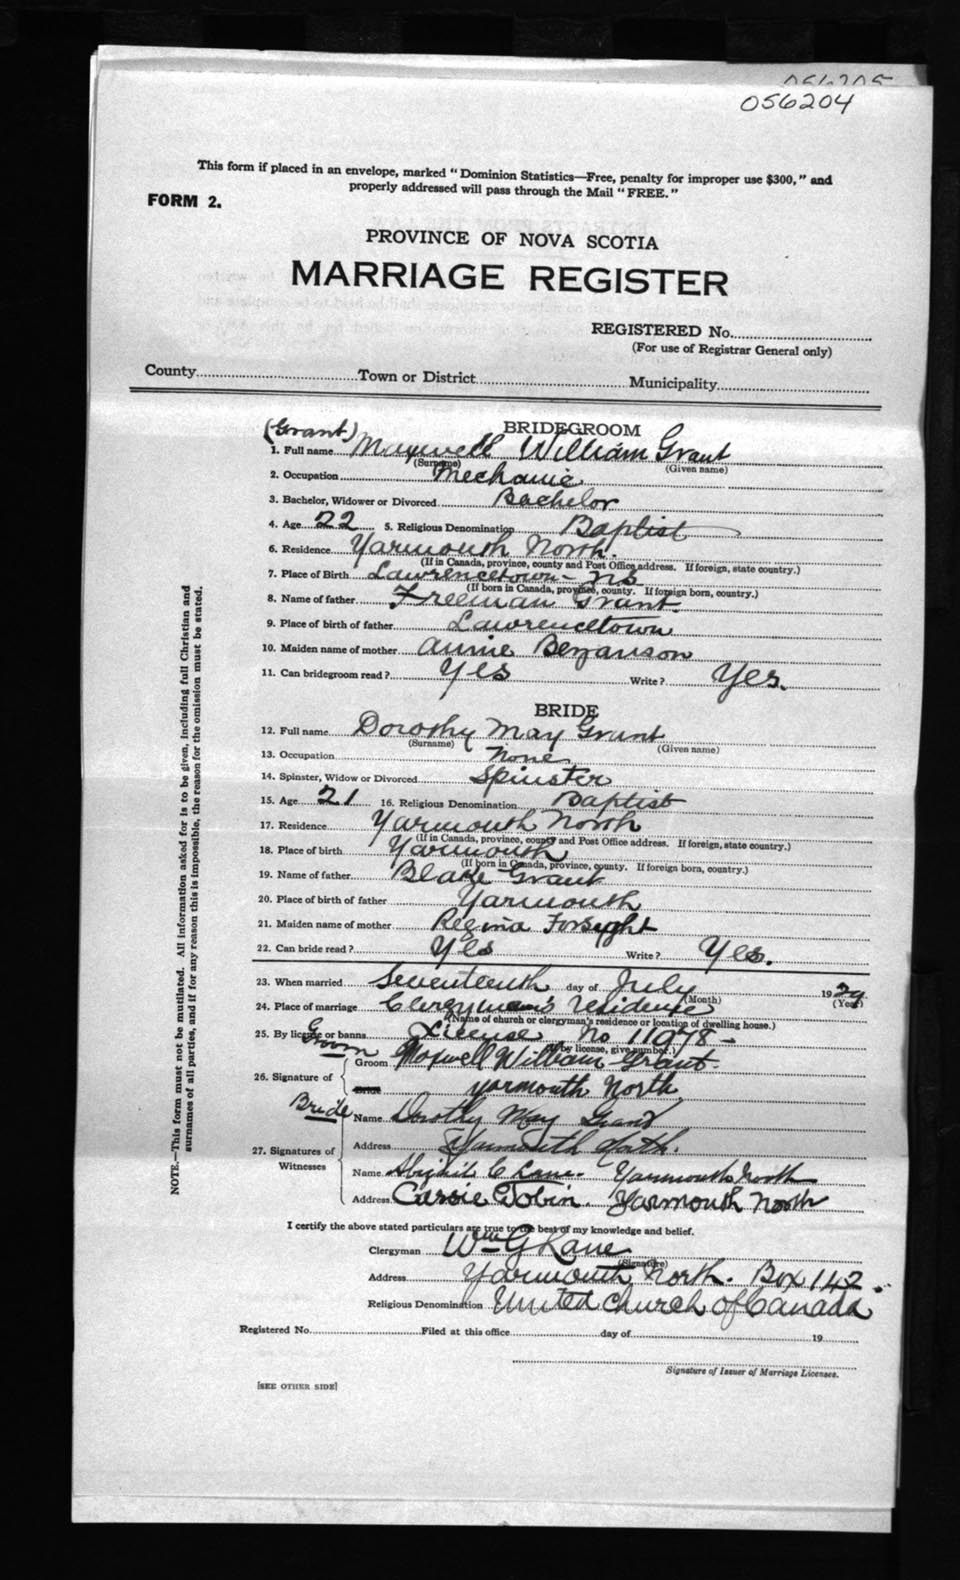 056205
056204
This form if placed in an envelope, marked "Dominion Statistics—Free, penalty for improper use $300," and
properly addressed will pass through the Mail "FREE."
FORM 2.
PROVINCE OF NOVA SCOTIA
MARRIAGE REGISTER
REGISTERED No.
(For use of Registrar General only)
County Town or District Municipality
BRIDEGROOM
(Grant)
1. Full name Maxwell William Grant
(Surname) (Given name)
2. Occupation Mechanic
3. Bachelor, Widower or Divorced Bachelor
4. Age 22 5. Religious Denomination Baptist
6. Residence Yarmouth North.
(If in Canada, province, county and Post Office address. If foreign, state country.)
7. Place of Birth Lawrencetown - NS
(If born in Canada, province, county. If foreign born, country.)
8. Name of father Freeman Grant.
9. Place of birth of father Lawrencetown
10. Maiden name of mother Annie Bezanson
11. Can bridegroom read? Yes Write? Yes.
BRIDE
12. Full name Dorothy May Grant
(Surname) (Given name)
13. Occupation None
14. Spinster, Widow or Divorced Spinster
15. Age 21 16. Religious Denomination Baptist
17. Residence Yarmouth North
(If in Canada, province, county and Post Office address. If foreign, state country.)
18. Place of birth Yarmouth
(If born in Canada, province, county. If foreign born, country.)
19. Name of father Blake Grant
20. Place of birth of father Yarmouth
21. Maiden name of mother Regina Forsyght
22. Can bride read? Yes Write? Yes.
23. When married Seventeenth day of July 1929
(Month) (Year)
24. Place of marriage Clergyman's residence
(Name of church or clergyman's residence or location of dwelling house.)
25. By license or banns License No 11978 -
(If by license, give number.)
Groom
Groom Maxwell William Grant.
26. Signature of Bride Yarmouth North
Bride
Name Dorothy May Grant
27. Signatures of Witnesses Address Yarmouth North.
Name Abigail C Lane. Yarmouth North
Address Cassie Tobin. Yarmouth North
I certify the above stated particulars are true to the best of my knowledge and belief.
Clergyman Wm G Lane
(Signature)
Address Yarmouth North. Box 142.
Religious Denomination United Church of Canada
Registered No. Filed at this office day of 19
Signature of Issuer of Marriage Licenses.
[SEE OTHER SIDE]
NOTE.—This form must not be mutilated. All information asked for is to be given, including full Christian and
surnames of all parties, and if for any reason this is impossible, the reason for the omission must be stated.